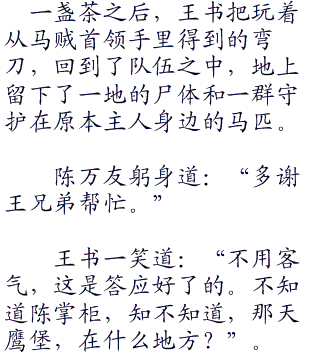 一盏茶之后，王书把玩着
从马贼首领手里得到的弯
刀，回到了队伍之中，地上
留下了一地的尸体和一群守
护在原本主人身边的马匹。
陈万友躬身道：“多谢
王兄弟帮忙。”
王书一笑道：“不用客
气，这是答应好了的。不知
道陈掌柜，知不知道，那天
鹰堡，在什么地方？”。